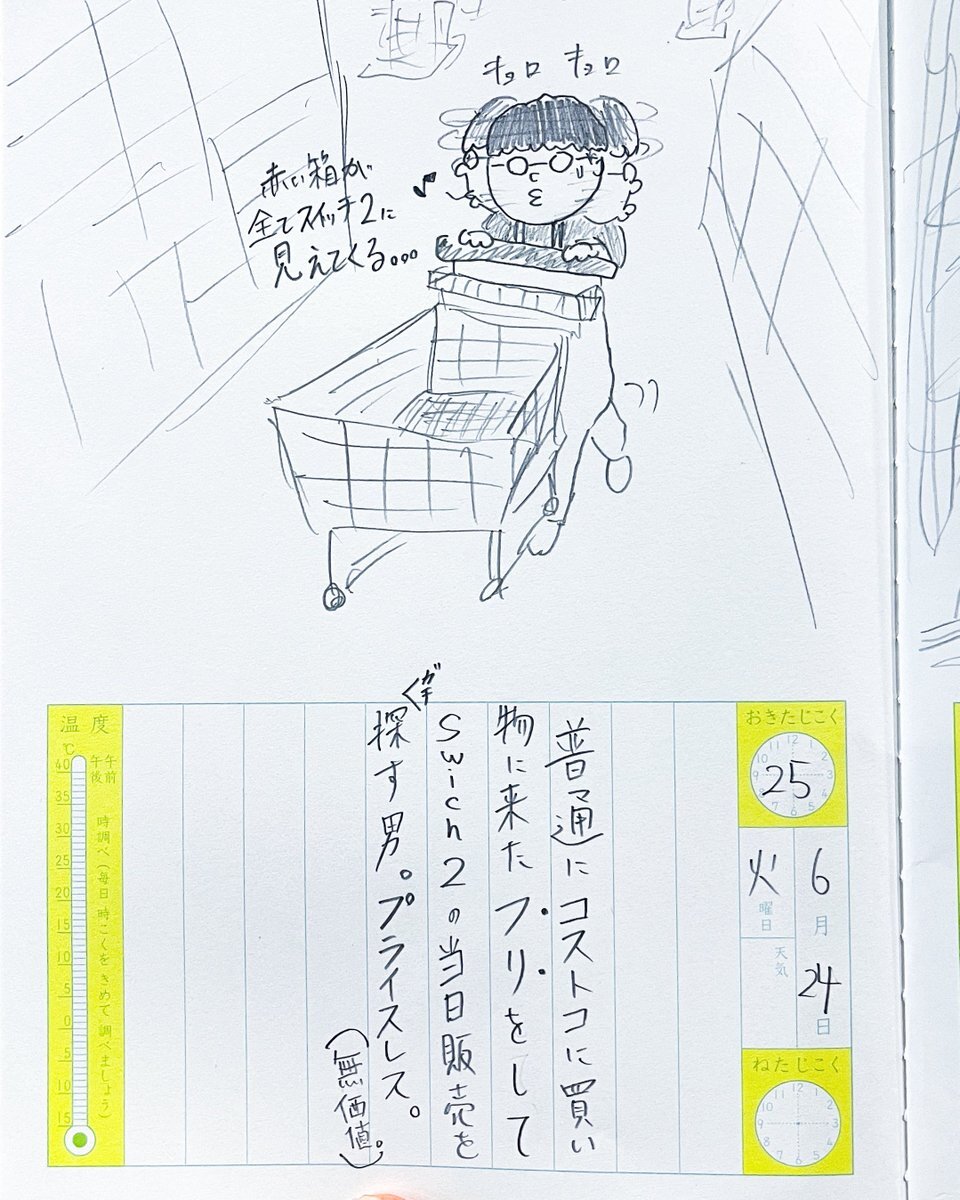 キョロ キョロ
赤い箱が
全てスイッチ2に
見えてくる...
おきたじこく
25
6月24日
火曜日
天気
ねたじこく
普通にコストコに買い
物に来たフリをして
Swich2の当日販売を
ガチで
探す男。プライスレス。
(無価値。)
温度
℃
午前
午後
時調べ(毎日時こくをきめて調べましょう)
40
35
30
25
20
15
10
5
0
5
10
15